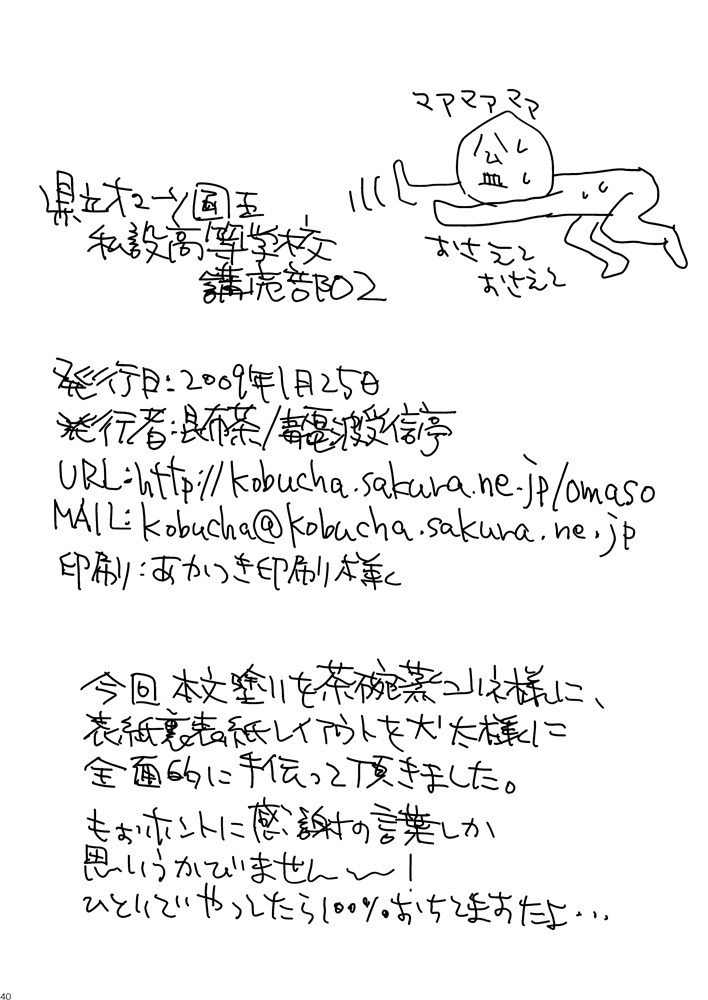 マアマアマア
県立オマーン国王
私設高等学校
講売部02
おさえて
おさえて
発行日:2009年1月25日
発行者:昆布茶/毒電波受信亭
URL:http://kobucha.sakura.ne.jp/omaso
MAIL:kobucha@kobucha.sakura.ne.jp
印刷:あかつき印刷様
今回本文塗りを茶碗蒸コハネ様に、
表紙裏表紙レイアウトを犬太様に
全面的に手伝って頂きました。
もぉホントに感謝の言葉しか
思いうかびません〜!
ひとりでやってたら100%おちてますたよ…
40